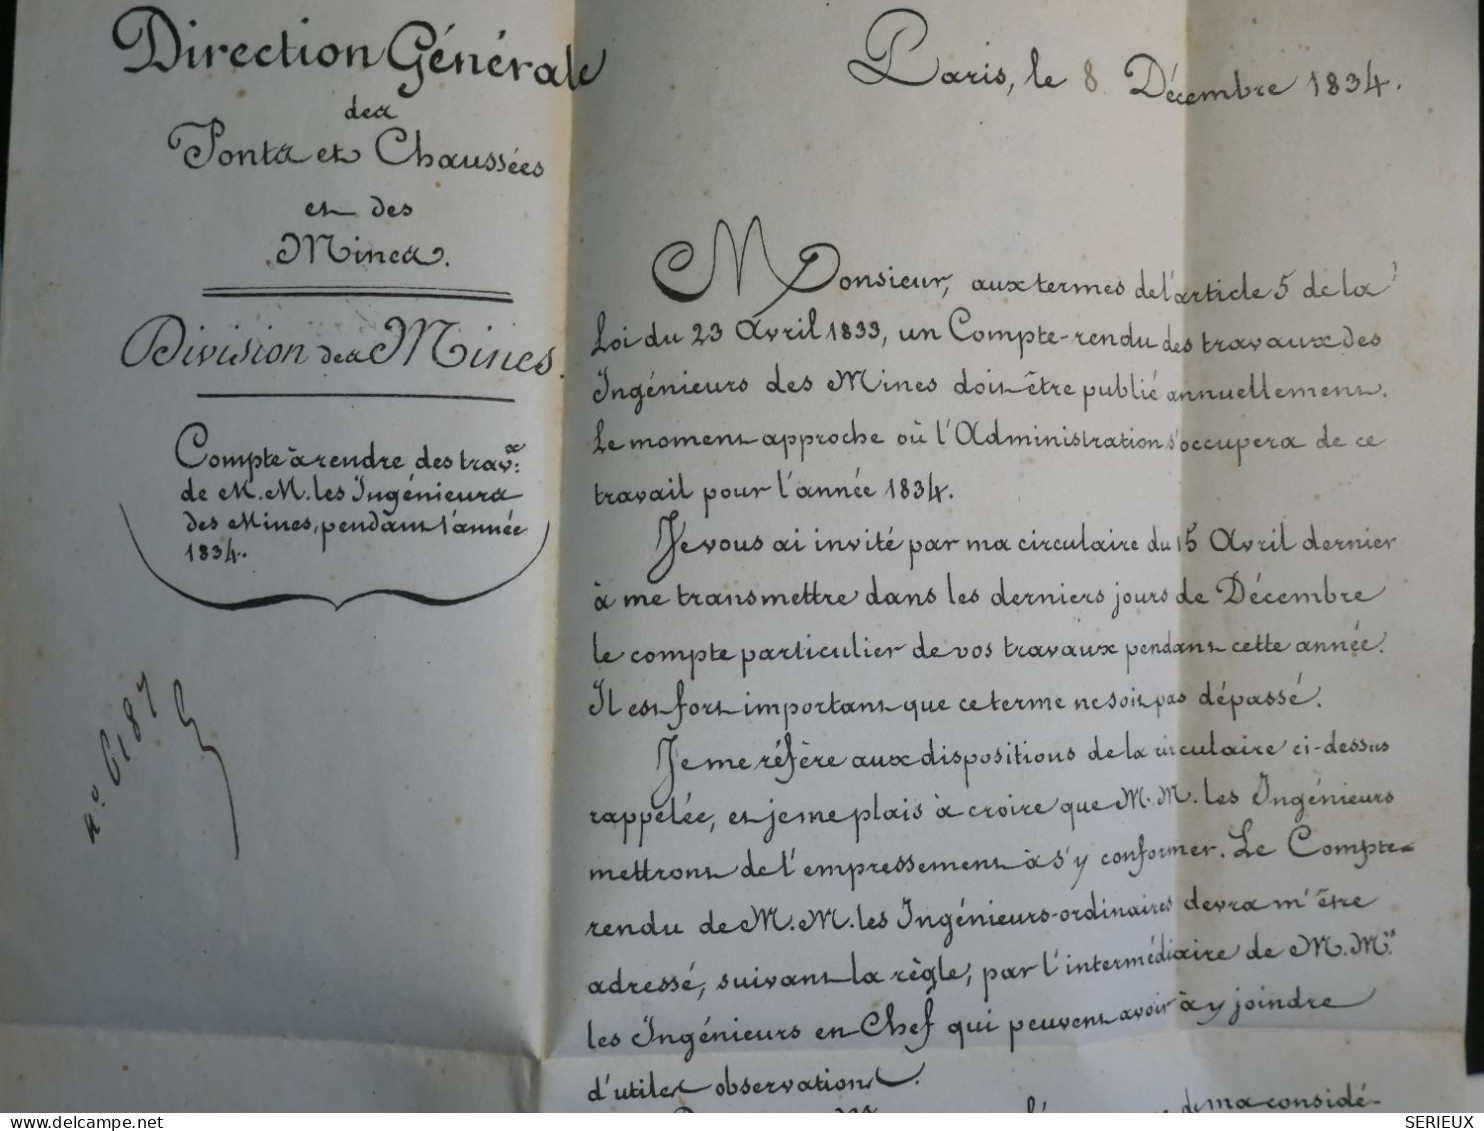 Direction Générale
des
Ponts et Chaussées
et des
Mines.
Division des Mines.
Compte à rendre des trav.x
de M.M. les Ingénieurs
des Mines, pendant l'année
1834.
n.° 6187
Paris, le 8 Décembre 1834.
Monsieur, aux termes de l'article 5 de la
Loi du 23 Avril 1833, un Compte-rendu des travaux des
Ingénieurs des Mines doit être publié annuellement.
Le moment approche où l'Administration s'occupera de ce
travail pour l'année 1834.
Je vous ai invité par ma circulaire du 15 Avril dernier
à me transmettre dans les derniers jours de Décembre
le compte particulier de vos travaux pendant cette année.
Il est fort important que ce terme ne soit pas dépassé.
Je me réfère aux dispositions de la circulaire ci-dessus
rappelée, et je me plais à croire que M.M. les Ingénieurs
mettront de l'empressement à s'y conformer. Le Compte-
rendu de M.M. les Ingénieurs-ordinaires devra m'être
adressé, suivant la règle, par l'intermédiaire de M.M.rs
les Ingénieurs en Chef qui peuvent avoir à y joindre
d'utiles observations.
de ma considé-
SERIEUX